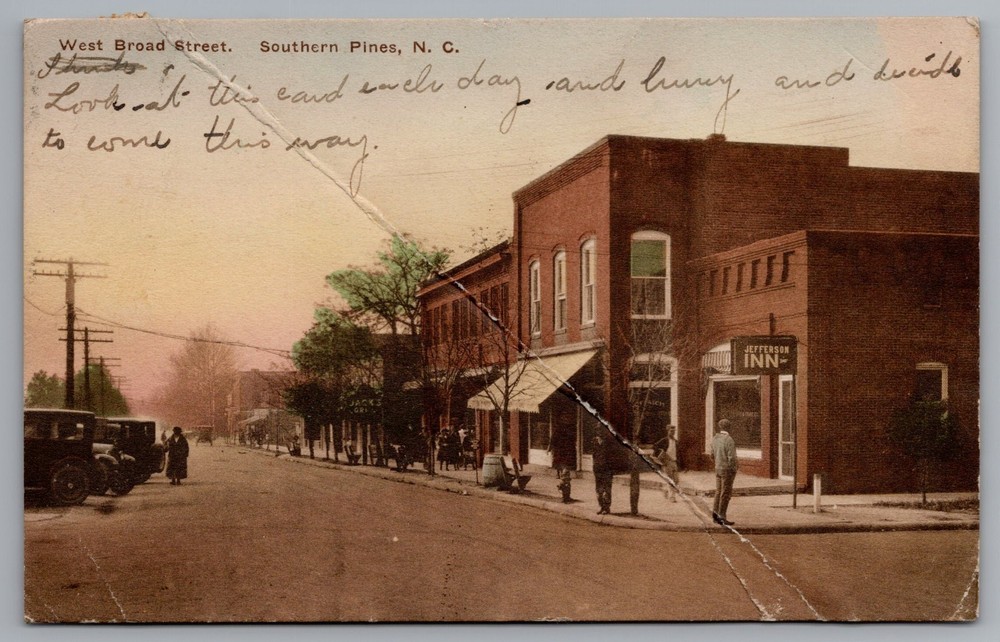 West Broad Street. Southern Pines, N. C.
Look at this card each day and hurry and decide
to come this way.
JACK'S
GRILL
JEFFERSON
INN